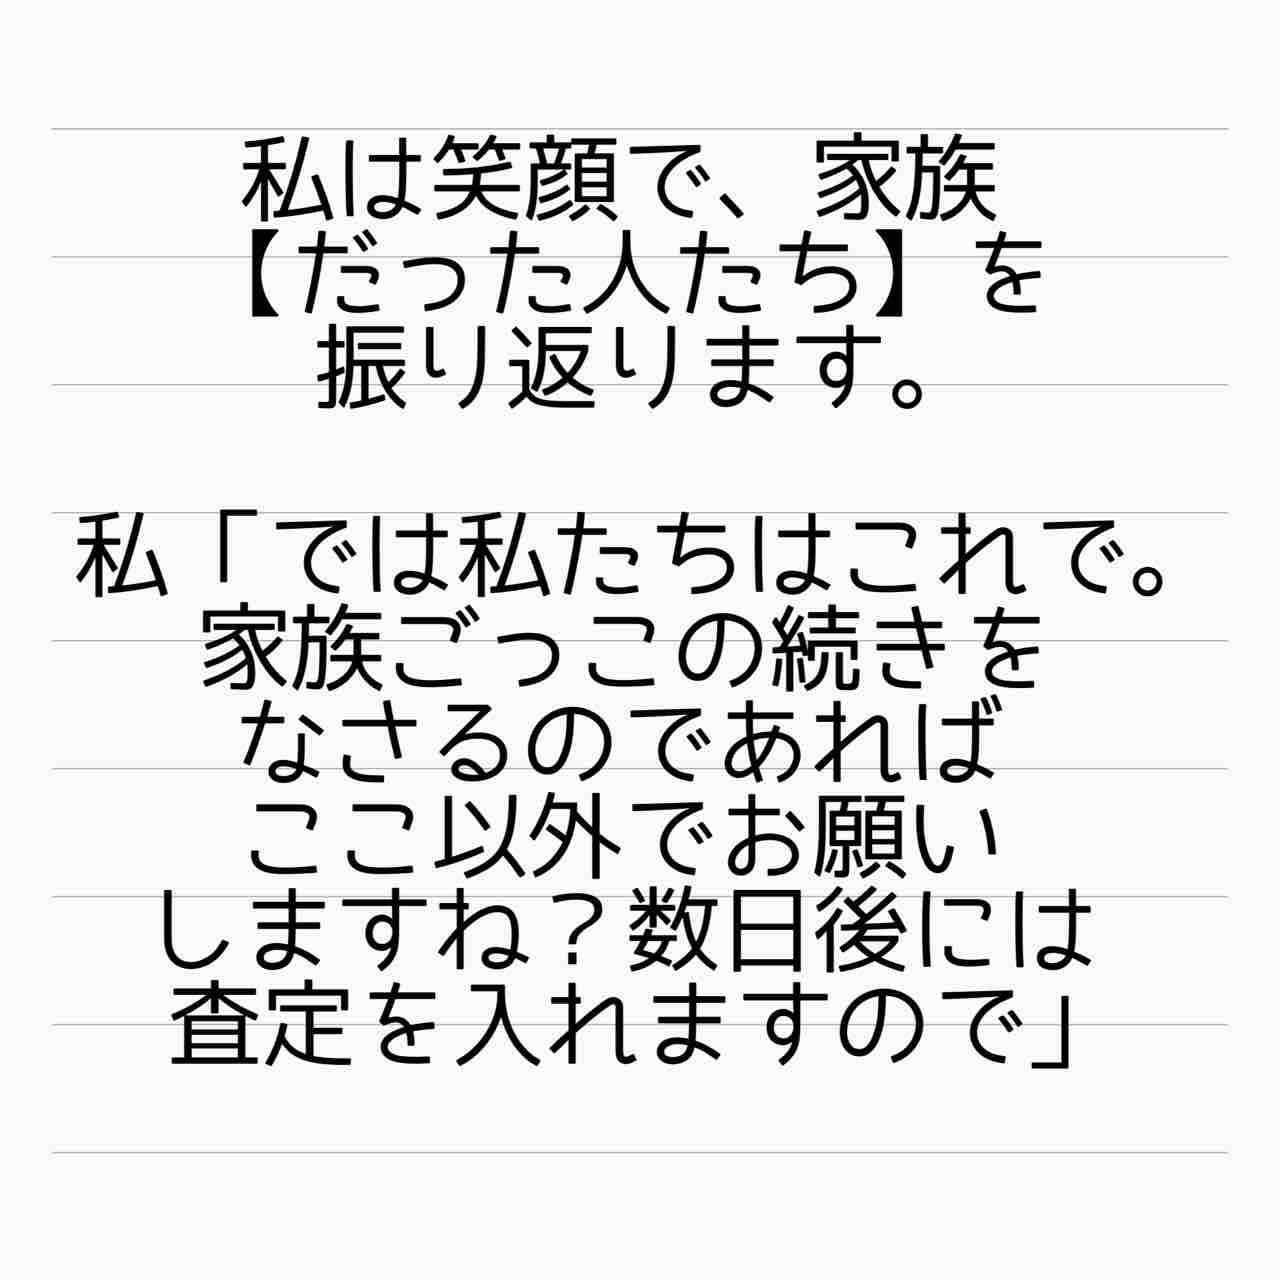 私は笑顔で、家族
【だった人たち】を
振り返ります。
私「では私たちはこれで。
家族ごっこの続きを
なさるのであれば
ここ以外でお願い
しますね？数日後には
査定を入れますので」